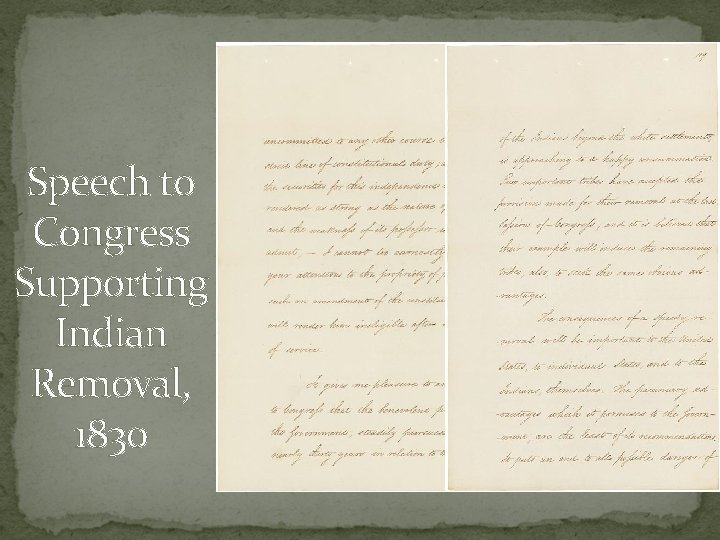 Speech to
Congress
Supporting
Indian
Removal,
1830
uncommitted to any other course t
dered line of constitutional duty;
the securities for this independence
rendered as strong as the nature o
and the weakness of its possessor w
admit, — I cannot too earnestly
your attention to the propriety of p
such an amendment of the constitu
will render him ineligible after
of service.
It gives me pleasure to an
to Congress that the benevolent p
the Government, steadily pursued
nearly thirty years in relation to t
of the Indians beyond the white settlements,
is approaching to a happy consummation.
Two important tribes have accepted the
provision made for their removal at the last
session of Congress; and it is believed that
their example will induce the remaining
tribes, also, to seek the same obvious ad-
-vantages.
The consequences of a speedy re-
moval will be important to the United
States, to individual States, and to the
Indians, themselves. The pecuniary ad-
-vantages which it promises to the Govern-
-ment, are the least of its recommendations.
It puts an end to all possible danger of